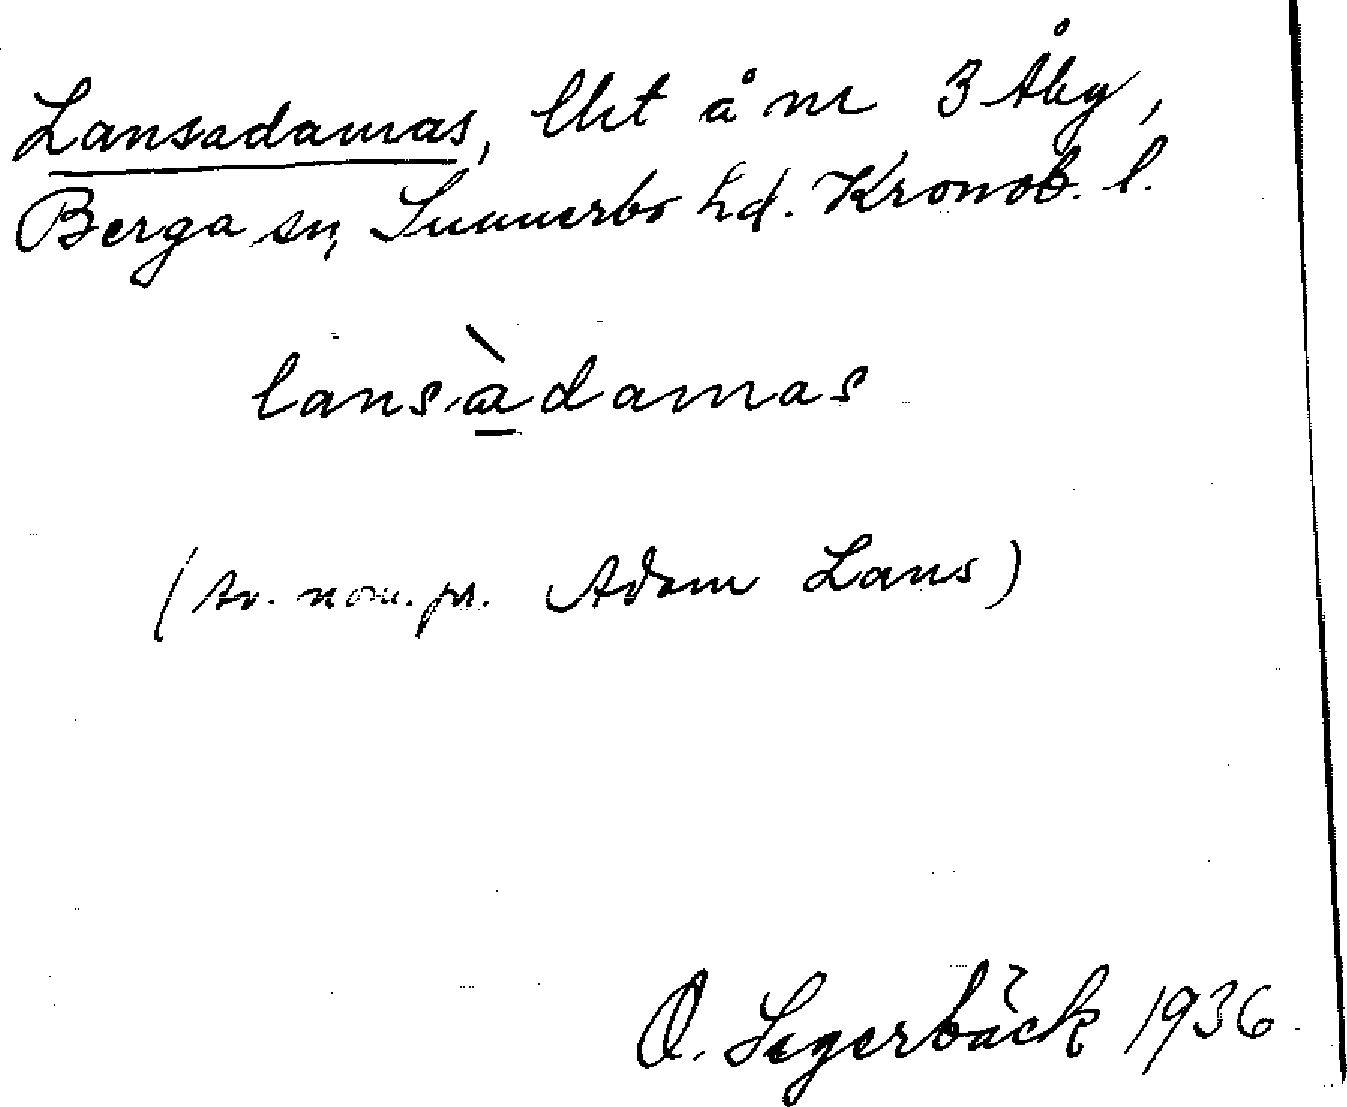 Lansadamas, lht å nr 3 Åby,
Berga sn, Sunnerbo hd. Kronob. l.
lansàdamas
(Av. nom. pr. Adam Lans)
O. Segerbäck 1936